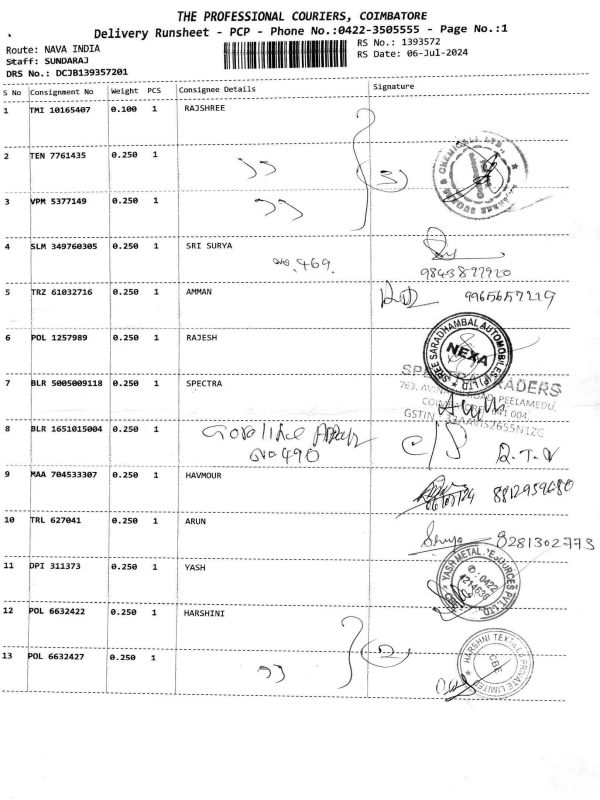 THE PROFESSIONAL COURIERS, COIMBATORE
Delivery Runsheet - PCP - Phone No.:0422-3505555 - Page No.:1
Route: NAVA INDIA
RS No.: 1393572
Staff: SUNDARAJ
RS Date: 06-Jul-2024
DRS No.: DCJB139357201
S No Consignment No Weight PCS Consignee Details Signature
1 TMI 10165407 0.100 1 RAJSHREE
2 TEN 7761435 0.250 1
3 VPM 5377149 0.250 1
4 SLM 349760305 0.250 1 SRI SURYA
no.469.
9843877920
5 TRZ 61032716 0.250 1 AMMAN
9965657219
6 POL 1257989 0.250 1 RAJESH
SREE SARADHAMBAL AUTOMOBILES (P) LTD
NEXA
7 BLR 5005009118 0.250 1 SPECTRA
PEELAMEDU,
641 004.
GSTIN
8 BLR 1651015004 0.250 1
no 490
9 MAA 704533307 0.250 1 HAVMOUR
8812959480
10 TRL 627041 0.250 1 ARUN
8281302773
11 DPI 311373 0.250 1 YASH
YASH METAL RESOURCES PVT LTD
0422
12 POL 6632422 0.250 1 HARSHINI
2
13 POL 6632427 0.250 1
HARSHNI TEXTILES PRIVATE LIMITED
CBE